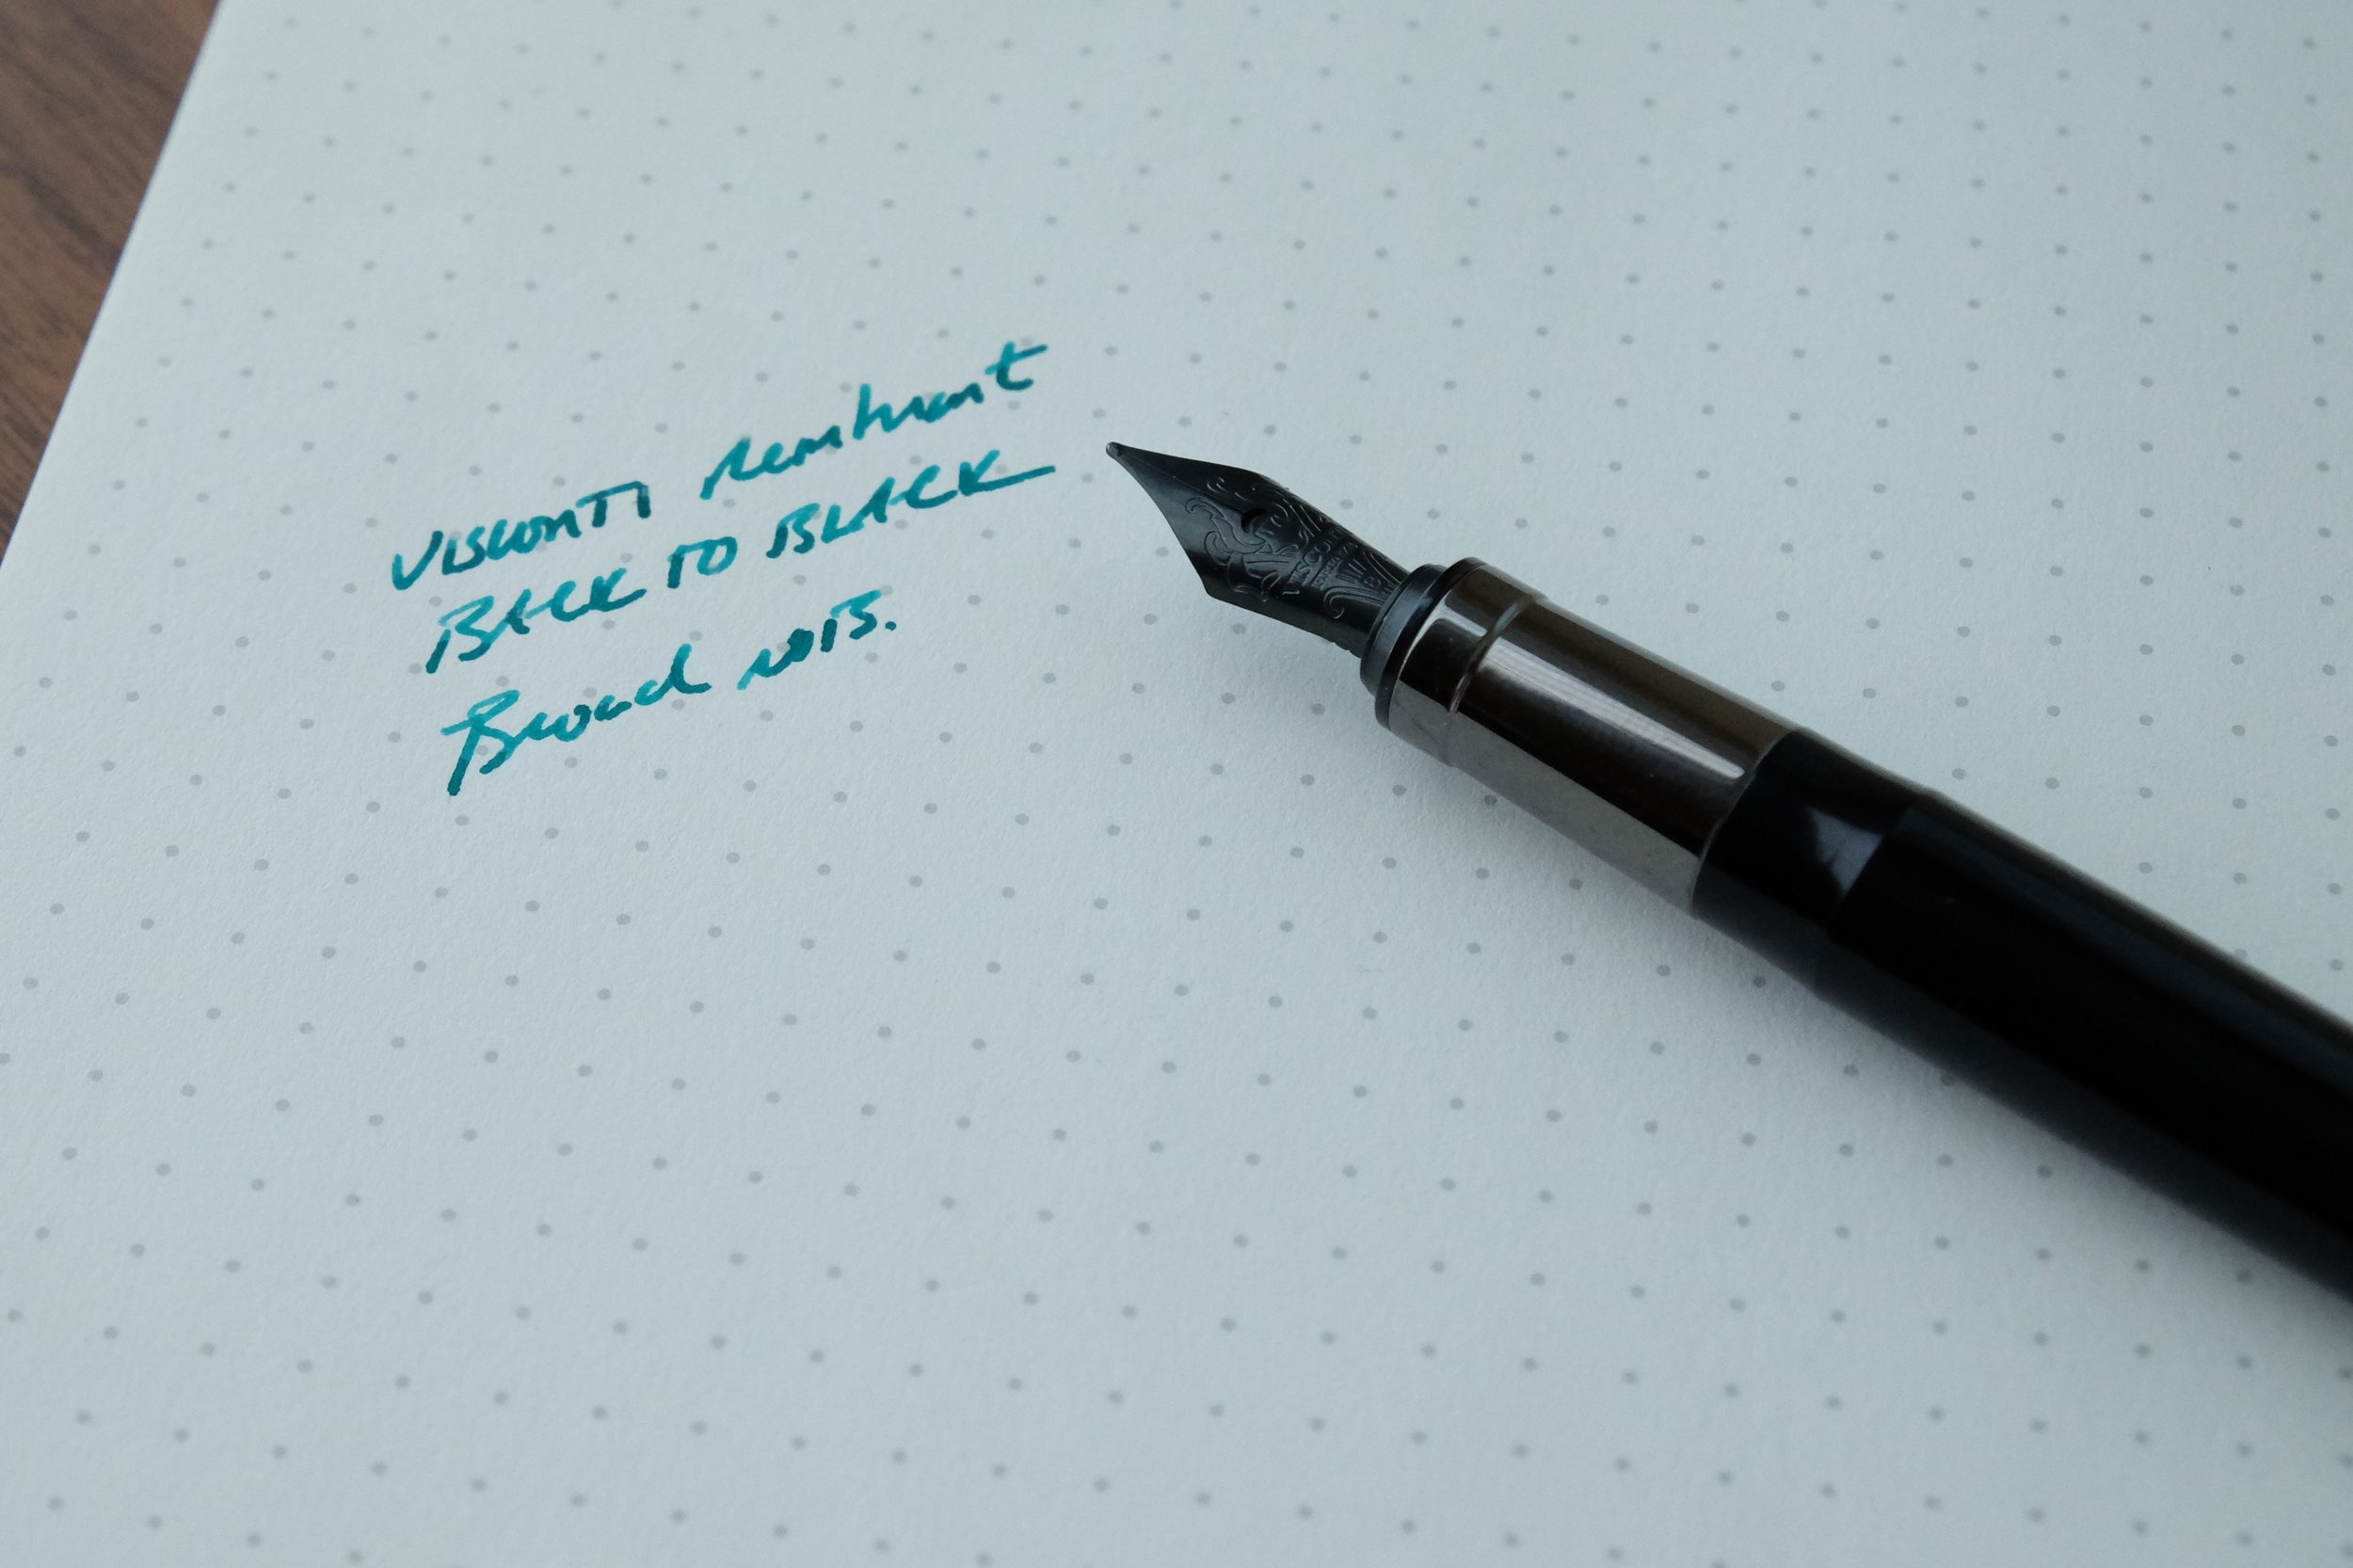 VISCONTI Rembrant
BACK TO BLACK
Broad NIB.
VISCONTI